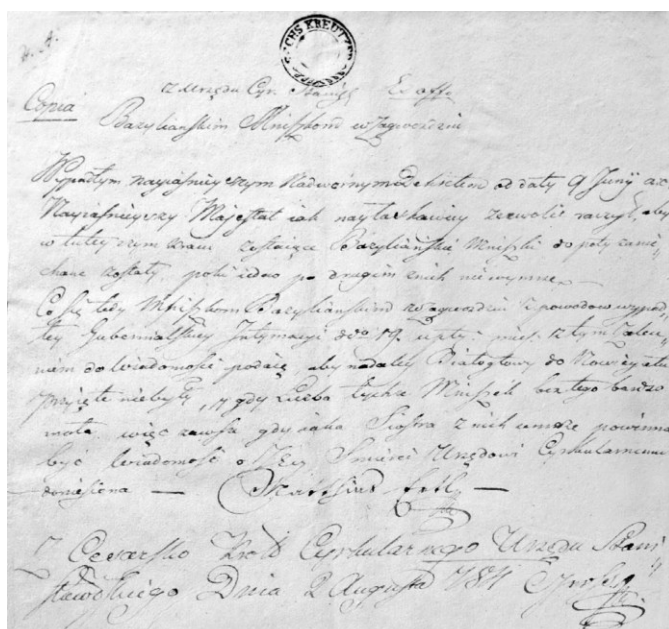 SECHS KREUTZER
z Urzędu Cyr. Stanisł. Ex offo
Copia
Bazyliańskim Mniszkom w Jagwozdziu
Wypadłym nayjaśnieyszym Nadwornym Dekretem od daty 9 Junÿ a.c.
Nayjaśnieyszy Majestat iak nayłaskawiey zezwolić raczył, aby
w tuteyszym kraiu zostaiące Bazyliańskie Mniszki do poty zanie
chane zostały, poki iedna po drugiey z nich niewymrze
Co się tedy Mniszkom Bazyliańskim w Jagwozdziu z powodow wypad
łey Gubernialskiey Intymacyi dto 19. upły: mies. z tym zalece
niem do wiadomości podaie, aby nadaley Białogłowy do Nowicyatu
przyięte niebyły, y gdy Liczba tychże Mniszek bez tego bardzo
mała, więc zawsze gdy iaka Siostra z nich umrze powinna
być wiadomość o Jey Smierci Urzędowi Cyrkularnemu
doniesiona — Matthius Ertl —
Z Cesarsko Krolo Cyrkularnego Urzędu Stani
sławskiego Dnia 2 Augusta 784